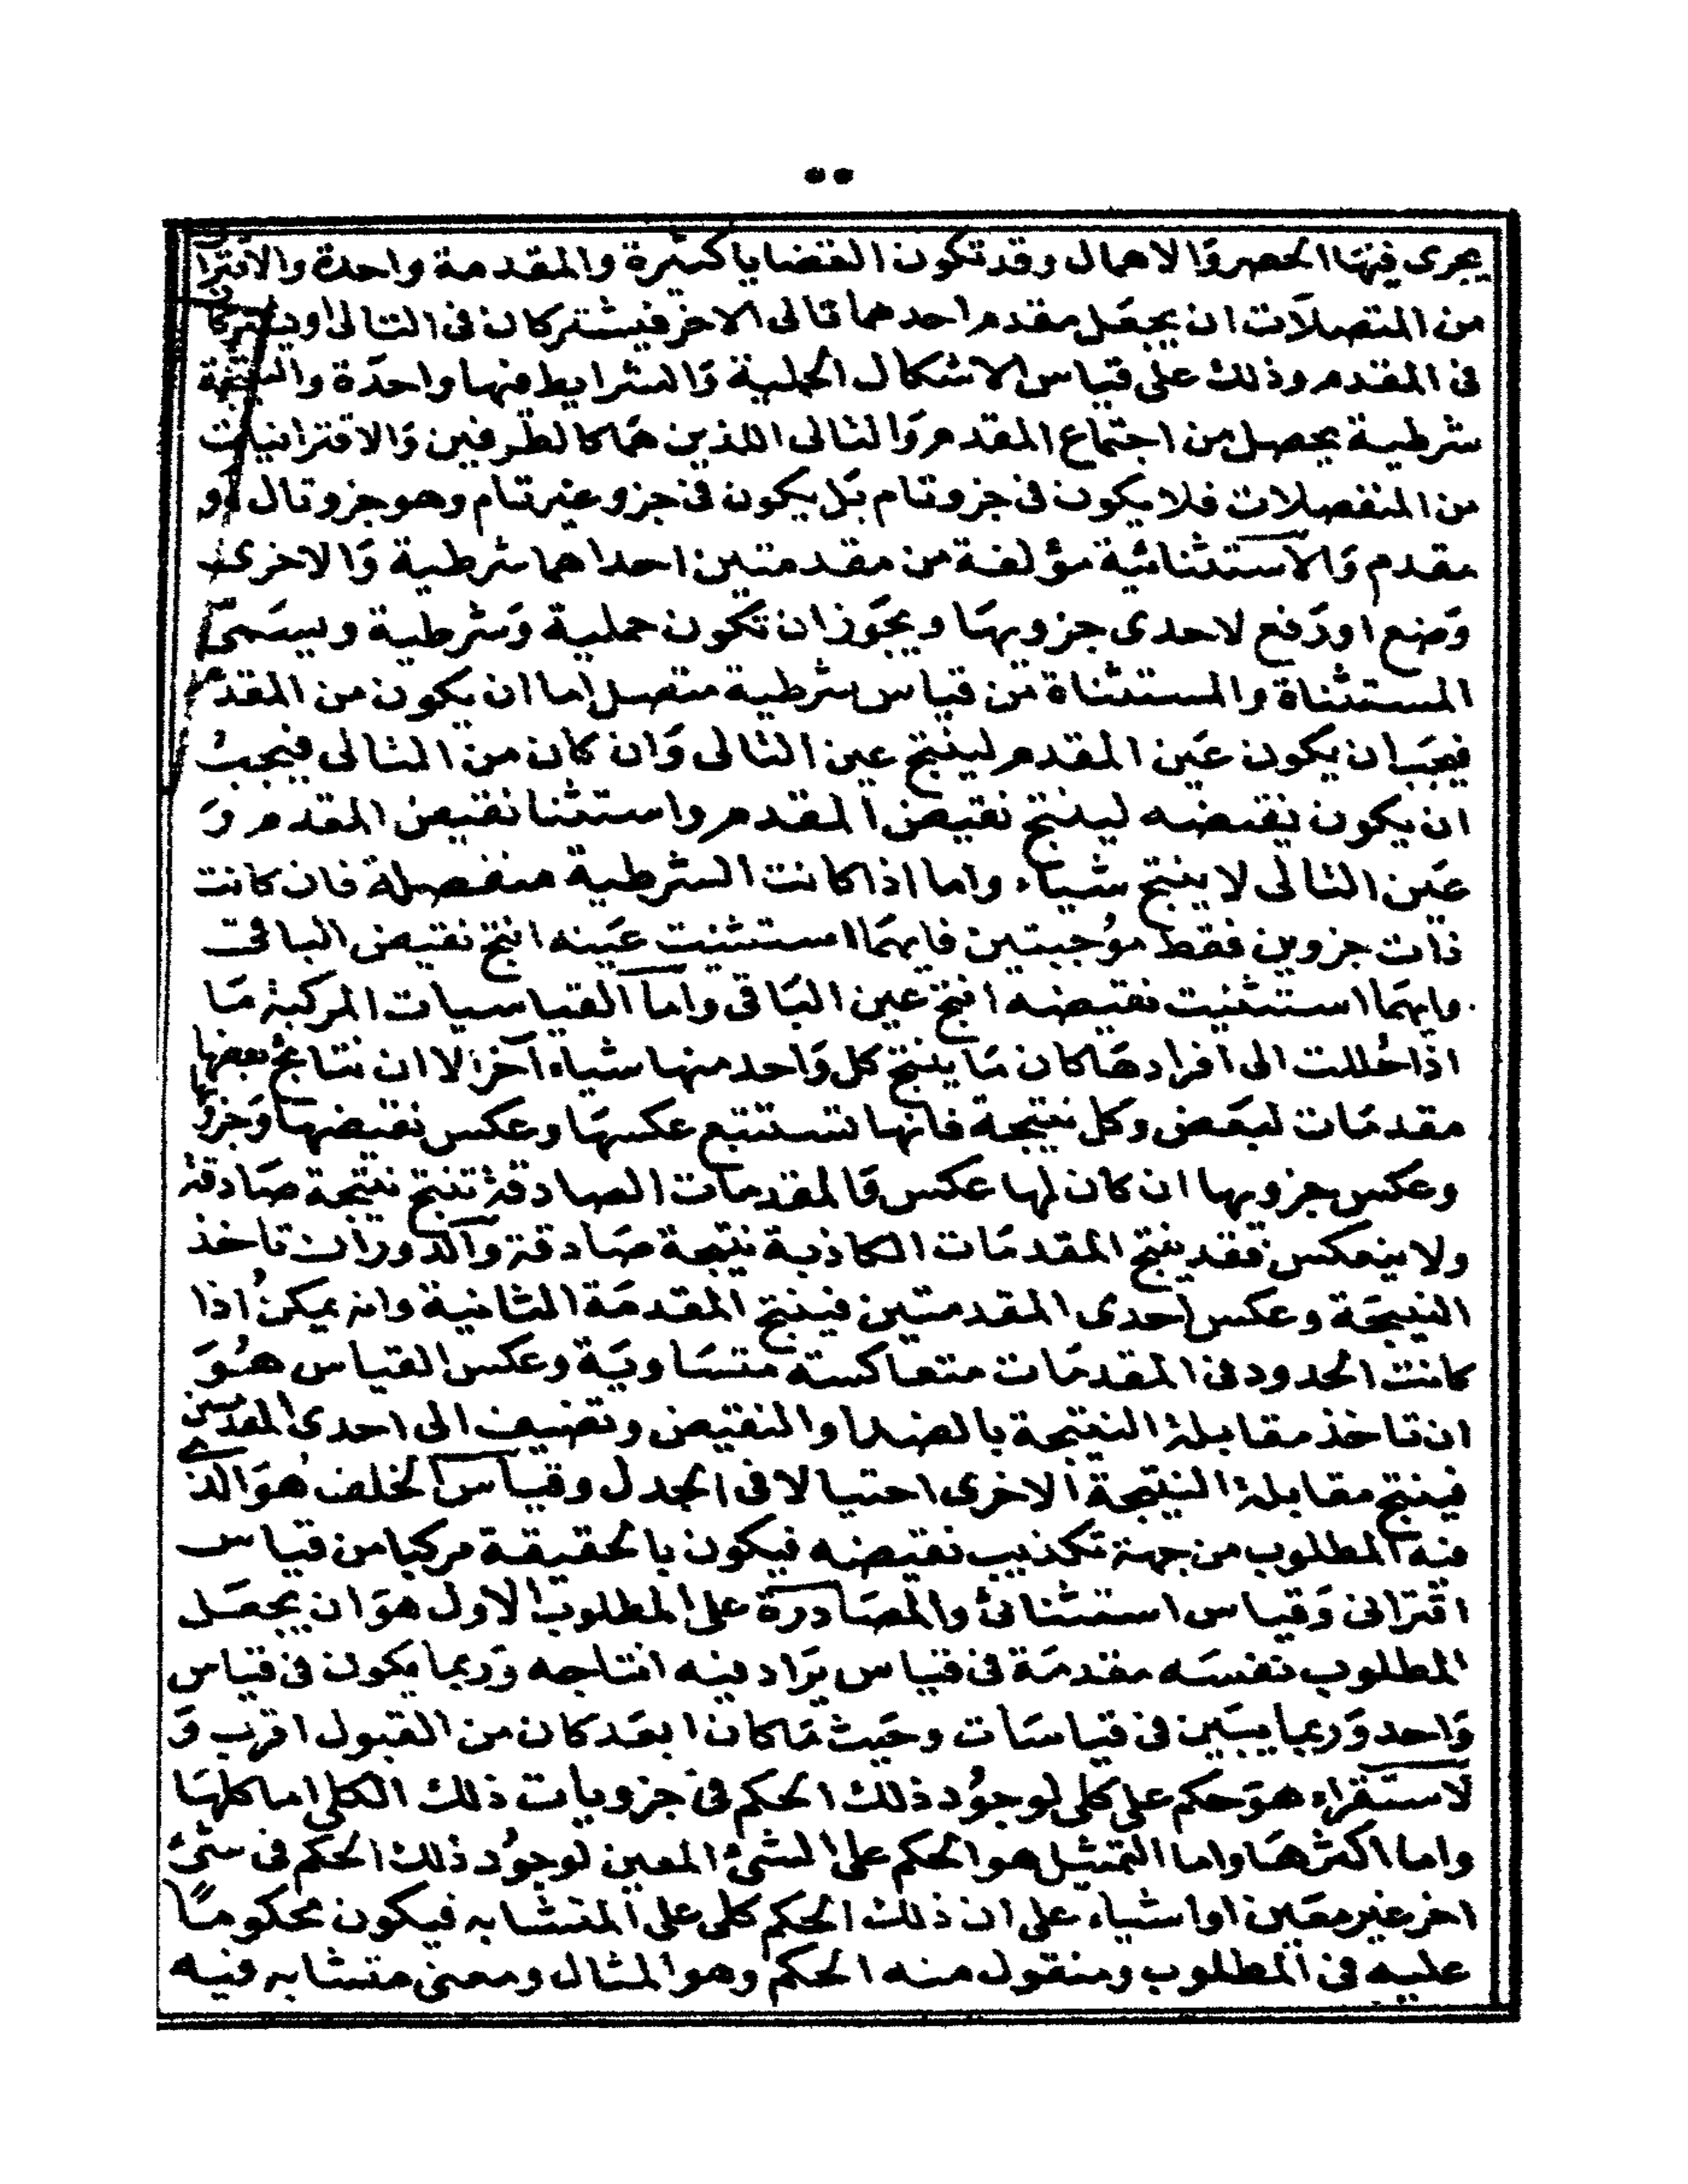 يجرى فيها الحصر والاهمال وقد تكون القضايا كثيرة والمقدمة واحدة والاقترانى
من المتصلات ان يجعل مقدم احدهما تالى الاخر فيشتركان فى التالى او يشتركان
فى المقدم وذلك على قياس الاشكال الحملية والشرايط فيها واحدة والنتيجة
شرطية يحصل من اجتماع المقدم والتالى اللذين هما كالطرفين والاقترانيات
من المنفصلات فلا يكون فى جزو تام بل يكون فى جزو غير تام وهو جزو تال او
مقدم والاستثنائية مؤلفة من مقدمتين احداهما شرطية والاخرى
وضع او رفع لاحدى جزويها ويجوز ان تكون حملية وشرطية ويسمى
المستثناة والمستثناة من قياس شرطية متصل اما ان يكون من المقدم
فيجب ان يكون عين المقدم لينتج عين التالى وان كان من التالى فيجب
ان يكون نقيضه لينتج نقيض المقدم واستثنا نقيض المقدم و
عين التالى لا ينتج شياء واما اذا كانت الشرطية منفصلة فان كانت
ذات جزوين فقط موجبتين فايهما استثنيت عينه انتج نقيض الباقى
وايهما استثنيت نقيضه انتج عين الباقى واما القياسيات المركبة ما
اذا حللت الى افرادها كان ما ينتج كل واحد منها شياء آخر الا ان نتايج بعضها
مقدمات لبعض وكل نتيجة فانها تستتبع عكسها وعكس نقيضها وجزوها
وعكس جزويها ان كان لها عكس فالمقدمات الصادقة تنتج نتيجة صادقة
ولا ينعكس فقد ينتج المقدمات الكاذبة نتيجة صادقة والدور ان تاخذ
النتيجة وعكس احدى المقدمتين فينتج المقدمة الثانية وانه يمكن اذا
كانت الحدود فى المقدمات متعاكسة متساوية وعكس القياس هو
ان تاخذ مقابلة النتيجة بالضد او النقيض وتضيف الى احدى المقدمتين
فينتج مقابلة النتيجة الاخرى احتيالا فى الجدل وقياس الخلف هو الذى
فيه المطلوب من جهة تكذيب نقيضه فيكون بالحقيقة مركبا من قياس
اقترانى وقياس استثنائ والمصادرة على المطلوب الاول هو ان يجعل
المطلوب نفسه مقدمة فى قياس يراد فيه انتاجه وربما يكون فى قياس
واحد وربما يبين فى قياسات وحيث ما كان ابعد كان من القبول اقرب و
لاستقراء هو حكم على كلى لوجود ذلك الحكم فى جزويات ذلك الكلى اما كلها
واما اكثرها واما التمثيل هو الحكم على الشئ المعين لوجود ذلك الحكم فى شئ
اخر غير معين او اشياء على ان ذلك الحكم كلى على المتشابه فيكون محكوما
عليه فى المطلوب ومنقول منه الحكم وهو المثال ومعنى متشابه فيه